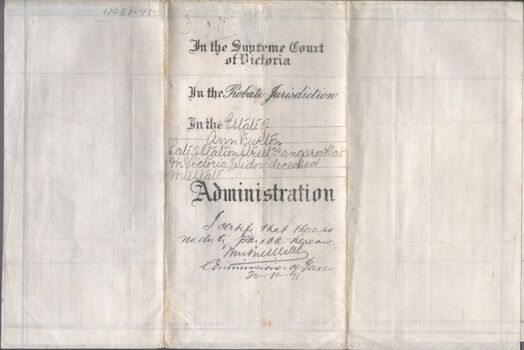 11081-41
In the Supreme Court
of Victoria
In the Probate Jurisdiction
In the Estate of
Ann Burton
Late of Station Street Kangaroo Flat
in Victoria, Widow, deceased
intestate
Administration
I certify that there is
no duty payable hereon
Commissioner of Taxes